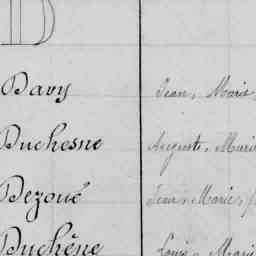 D
Davy Jean, Marie,
Duchesne Auguste, Marie
Dezoué Jean, Marie,
Duchêne Louis, Marie